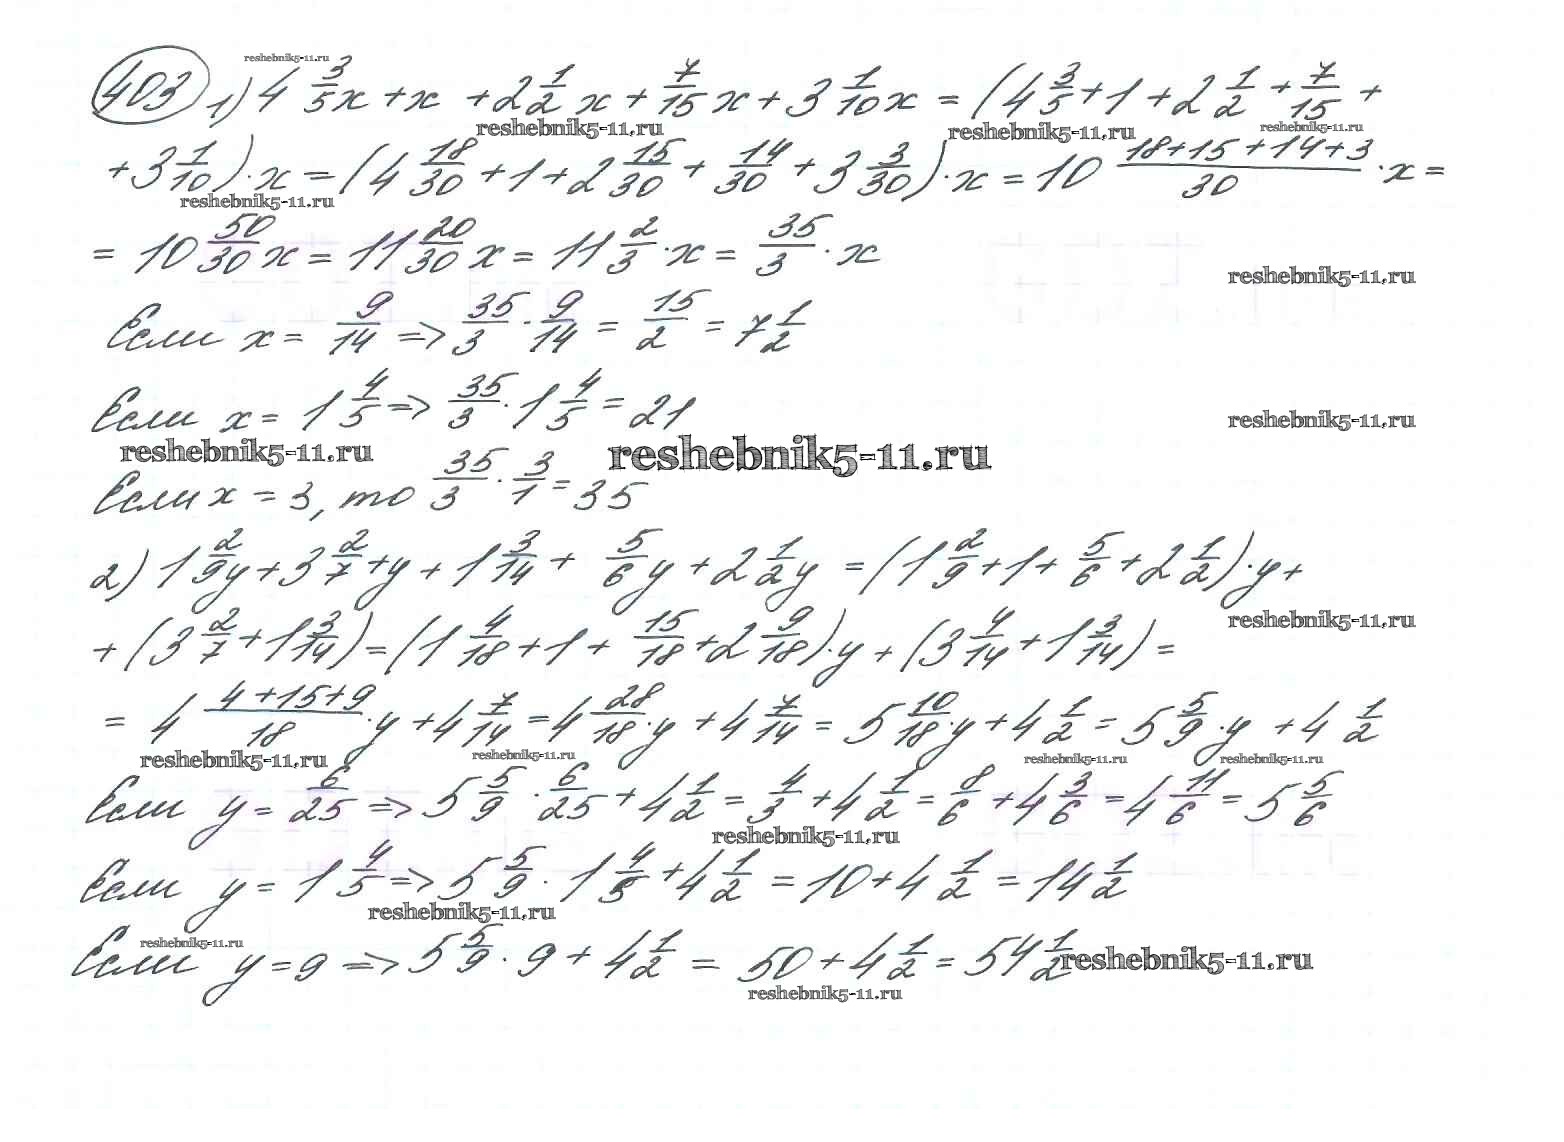 reshebnik5-11.ru
403 1) 4 3/5 x + x + 2 1/2 x + 7/15 x + 3 1/10 x = (4 3/5 + 1 + 2 1/2 + 7/15 +
reshebnik5-11.ru reshebnik5-11.ru reshebnik5-11.ru
+ 3 1/10) · x = (4 18/30 + 1 + 2 15/30 + 14/30 + 3 3/30) · x = 10 18+15+14+3/30 · x =
reshebnik5-11.ru
= 10 50/30 x = 11 20/30 x = 11 2/3 · x = 35/3 · x
reshebnik5-11.ru
Если x = 9/14 => 35/3 · 9/14 = 15/2 = 7 1/2
Если x = 1 4/5 => 35/3 · 1 4/5 = 21
reshebnik5-11.ru
reshebnik5-11.ru reshebnik5-11.ru
Если x = 3, то 35/3 · 3/1 = 35
2) 1 2/9 y + 3 2/7 + y + 1 3/14 + 5/6 y + 2 1/2 y = (1 2/9 + 1 + 5/6 + 2 1/2) · y +
reshebnik5-11.ru
+ (3 2/7 + 1 3/14) = (1 4/18 + 1 + 15/18 + 2 9/18) · y + (3 4/14 + 1 3/14) =
= 4 4+15+9/18 · y + 4 7/14 = 4 28/18 · y + 4 7/14 = 5 10/18 y + 4 1/2 = 5 5/9 · y + 4 1/2
reshebnik5-11.ru reshebnik5-11.ru reshebnik5-11.ru reshebnik5-11.ru
Если y = 6/25 => 5 5/9 · 6/25 + 4 1/2 = 4/3 + 4 1/2 = 8/6 + 4 3/6 = 4 11/6 = 5 5/6
reshebnik5-11.ru
Если y = 1 4/5 => 5 5/9 · 1 4/5 + 4 1/2 = 10 + 4 1/2 = 14 1/2
reshebnik5-11.ru
reshebnik5-11.ru
Если y = 9 => 5 5/9 · 9 + 4 1/2 = 50 + 4 1/2 = 54 1/2
reshebnik5-11.ru
reshebnik5-11.ru